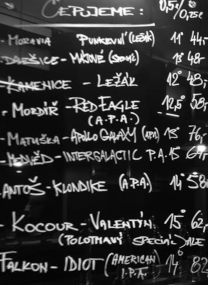 ČEPUJEME: 0,5ℓ/0,35ℓ
- MORAVIA PIVKOVNÍ (LEŽÁK) 11° 44,-
- DALEŠICE - WRANÉ 13° 48-
- KAMENICE - LEŽÁK 12° 48,-
- MORDÝŘ - RED EAGLE 12,5° 58,-
(A.P.A.)
- MATUŠKA - APOLLO GALAXY (APA) 13° 76,-
- MEDVĚD - INTERGALACTIC P.A. 15° 67,-
- ANTOŠ - KLONDIKE (A.P.A.) 14° 58,-
- KOCOUR - VALENTÝN 15° 62,-
(POLOTMAVÝ SPECIAL ALE
FALKON - IDIOT (AMERICAN I.P.A. 14° 82